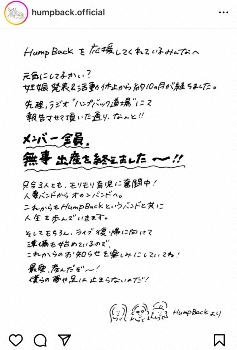 humpback.official
HumpBackを応援してくれているみんなへ
元気にしてるかい？
妊娠発表&活動休止から約10ヵ月が経ちました。
先程、ラジオ"ハンプバック道場"にて
報告させて頂いた通り、なんと!!
メンバー全員、
無事出産を終えました〜!!
只今3人とも、モリモリ育児に奮闘中！
人妻バンドからオカンバンドへ。
これからもHumpBackというバンドと共に
人生を歩んでいきます。
そしてもちろん、ライブ復帰に向けて
準備を始めているので、
これからのお知らせを楽しみにしていてね！
最高、産んだぞ〜！
僕らの夢や足は止まらないのだ！
HumpBackより